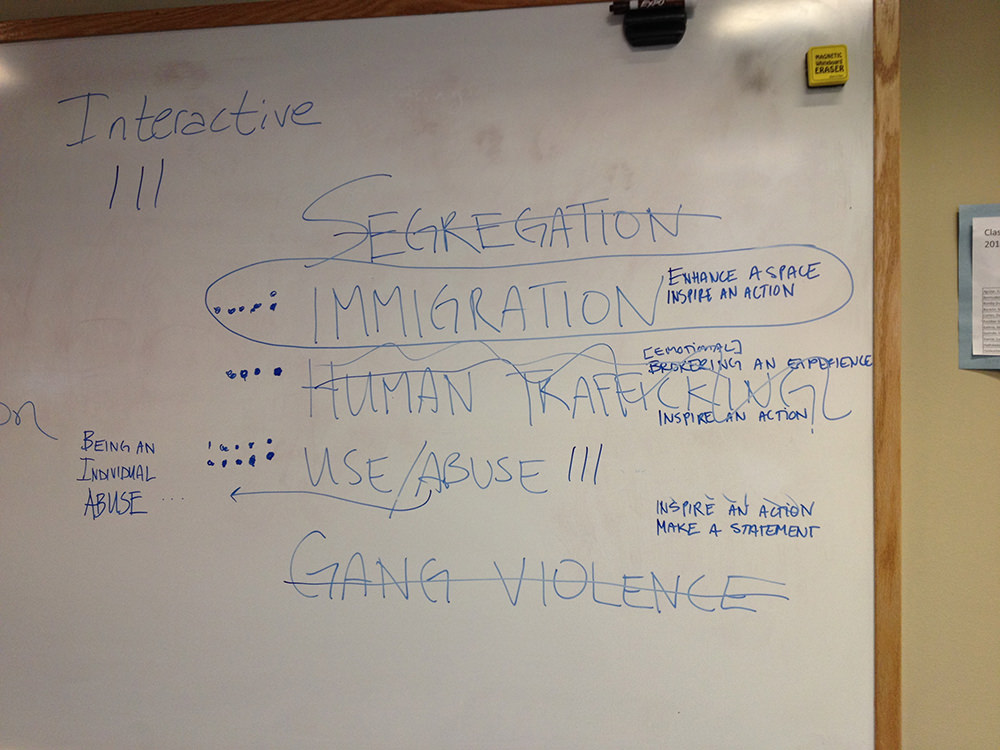 EXPO
MAGNETIC
Whiteboard
ERASER
Interactive
III
SEGREGATION
IMMIGRATION
ENHANCE A SPACE
INSPIRE AN ACTION
[EMOTIONAL]
BROKERING AN EXPERIENCE
HUMAN TRAFFICKING
INSPIRE AN ACTION
on
BEING AN
INDIVIDUAL
ABUSE ...
USE/ABUSE III
INSPIRE AN ACTION
MAKE A STATEMENT
GANG VIOLENCE
Clas
201